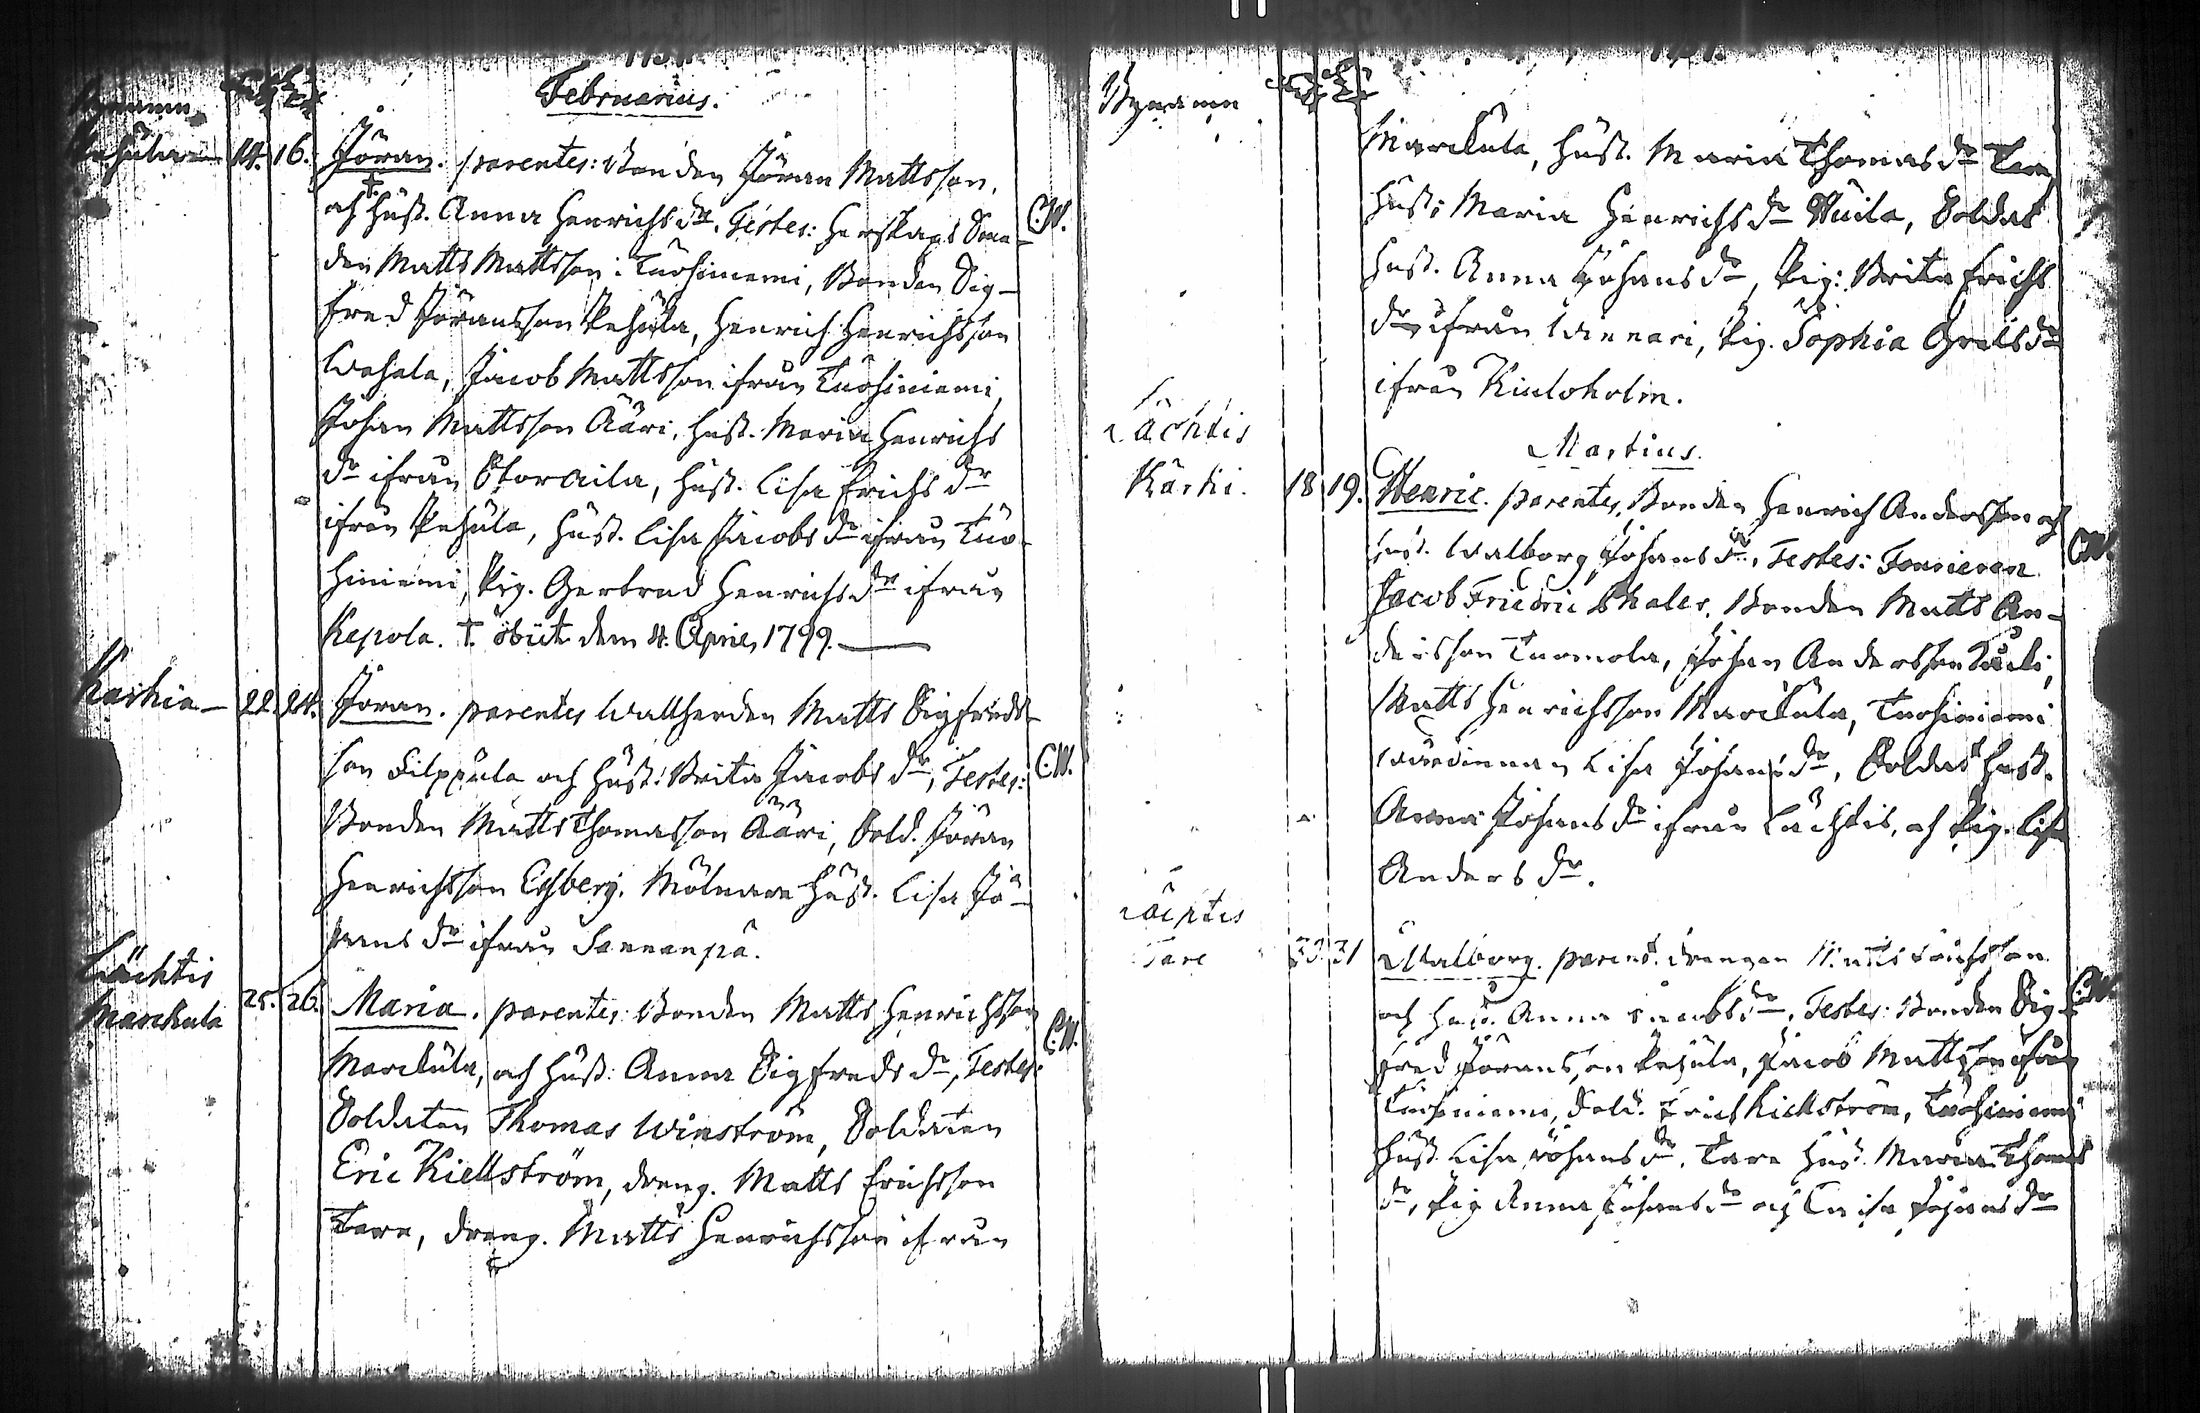 Februarius.
Pehula 14. 16. Jöran. parentes: Bonden Jöran Mattsson,
och Hust. Anna Henrichs dr. Testes: Herskaps Bon- C.W.
den Matts Mattsson i Tuohiniemi, Bonden Sig-
fred Jöransson Pehula, Henrich Henrichsson
Wahala, Jacob Mattsson ifrån Tuohiniemi,
Johan Mattsson Ääri, Hust. Maria Henrichs
dr ifrån Storaila, Hust. Lisa Erichs dr
ifrån Pehula, Hust. Lisa Jacobs dr ifrån Tuo-
hiniemi, Pig. Gertrud Henrichs dr ifrån
Kepola. †. obiit dem 4. April, 1799.
Karhia 22. 24. Jöran. parentes Wallherden Matts Sigfreds-
son Filppula och Hust: Brita Jacobs dr, Testes: C.W.
Bonden Matts Thomasson Ääri, Sold. Jöran
Henrichsson Essberg. Mölnare Hust. Lisa Jö-
rans dr ifrån Sannanpä.
Lächtis
Marckula 25. 26. Maria. parentes: Bonden Matts Henrichsson
Marckula, och Hust: Anna Sigfreds dr, Testes: C.W.
Soldaten Thomas Winström, Soldaten
Eric Kiellström, dreng. Matts Erichsson
Tare, dreng. Matts Henrichsson ifrån
Bynamn
Marckula, Hust. Maria Thomas dr Tare,
Hust: Maria Henrichs dr Nuila, Soldat
Hust. Anna Johans dr, Pig: Brita Erichs
dr ifrån Winnari, Pig. Sophia Grels dr
ifrån Kiuloholm.
Martius.
Lächtis
Karhi. 18 19. Henric. parentes, Bonden Henrich Andersson och
Hust. Walborg Johans dr, Testes: Fourieren C.W.
Jacob Friedric Thaler, Bonden Matts An-
dersson Tuomola, Johan Andersson
Matts Henrichsson Marckula, Tuohiniemi
wärdinnan Lisa Johans dr, Soldat Hust.
Anna Johans dr ifrån Lächtis, och Pig. Lisa
Anders dr.
Lächtis
Tare 30 31 Walborg. parent. drengen Matts
och Hust. Anna Jacobs dr, Testes: Bonden Sig- C.W.
fred Jöransson Pehula, Jacob Mattsson ifrån
Tuohiniemi, Sold. Erich Kiellström, Tuohiniemi
Hust. Lisa Johans dr. Tare Hust. Maria Thomas
dr, Pig Anna Johans dr och Caisa Johans dr